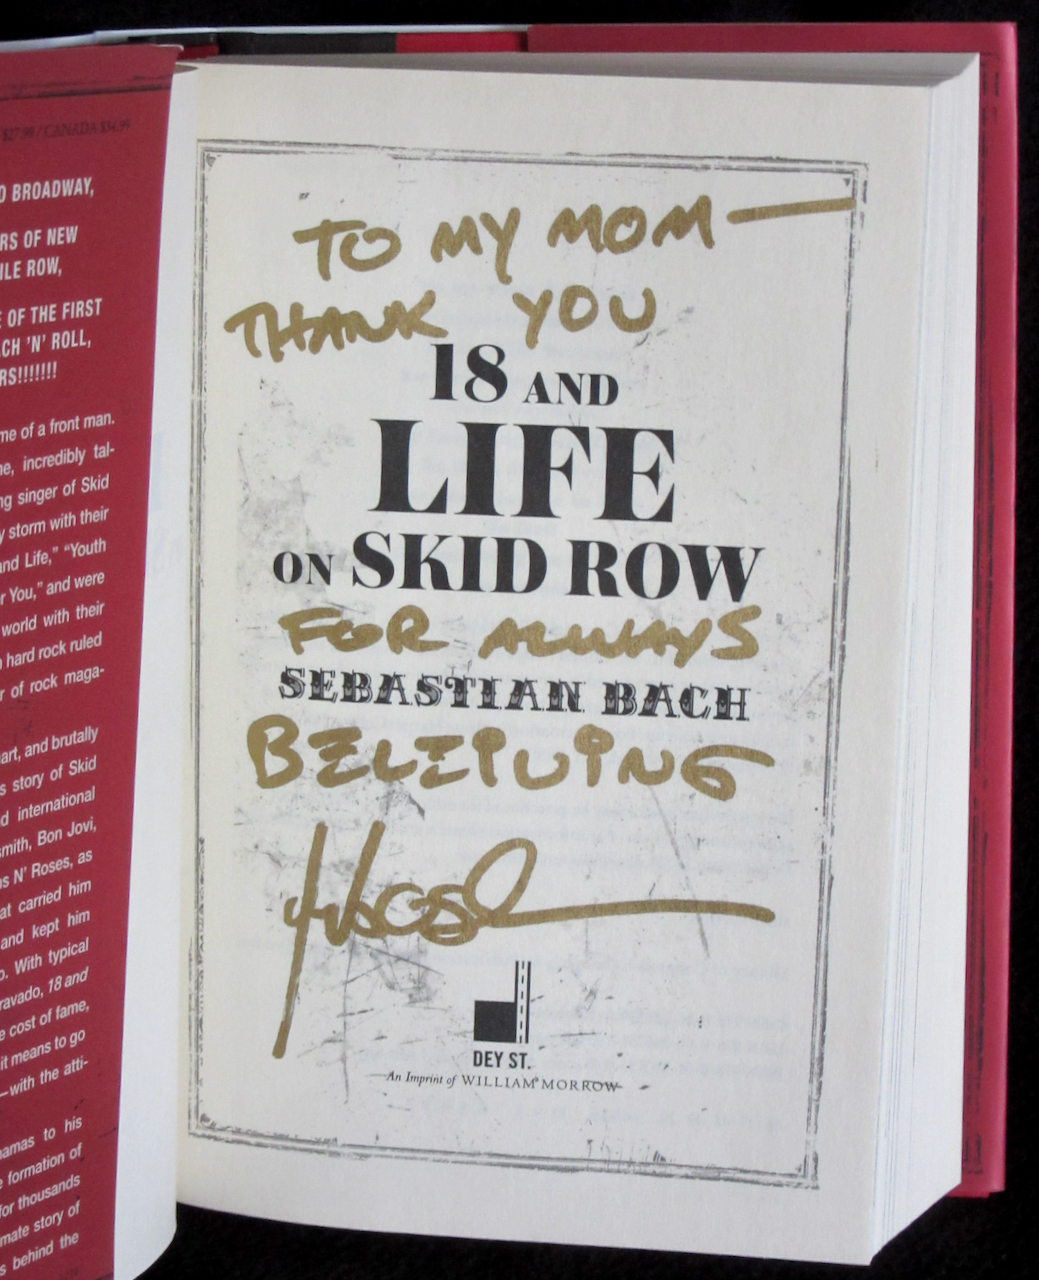 $27.99 / CANADA $34.99
O BROADWAY,
RS OF NEW
ILE ROW,
E OF THE FIRST
CH 'N' ROLL,
RS!!!!!!!
me of a front man.
ne, incredibly tal-
ng singer of Skid
y storm with their
and Life," "Youth
r You," and were
world with their
n hard rock ruled
r of rock maga-
art, and brutally
s story of Skid
d international
smith, Bon Jovi,
ns N' Roses, as
at carried him
and kept him
o. With typical
ravado, 18 and
e cost of fame,
it means to go
—with the atti-
amas to his
e formation of
for thousands
mate story of
s behind the
TO MY MOM —
THANK YOU
18 AND
LIFE
ON SKID ROW
FOR ALWAYS
SEBASTIAN BACH
BELEIVING
DEY ST.
An Imprint of WILLIAM MORROW